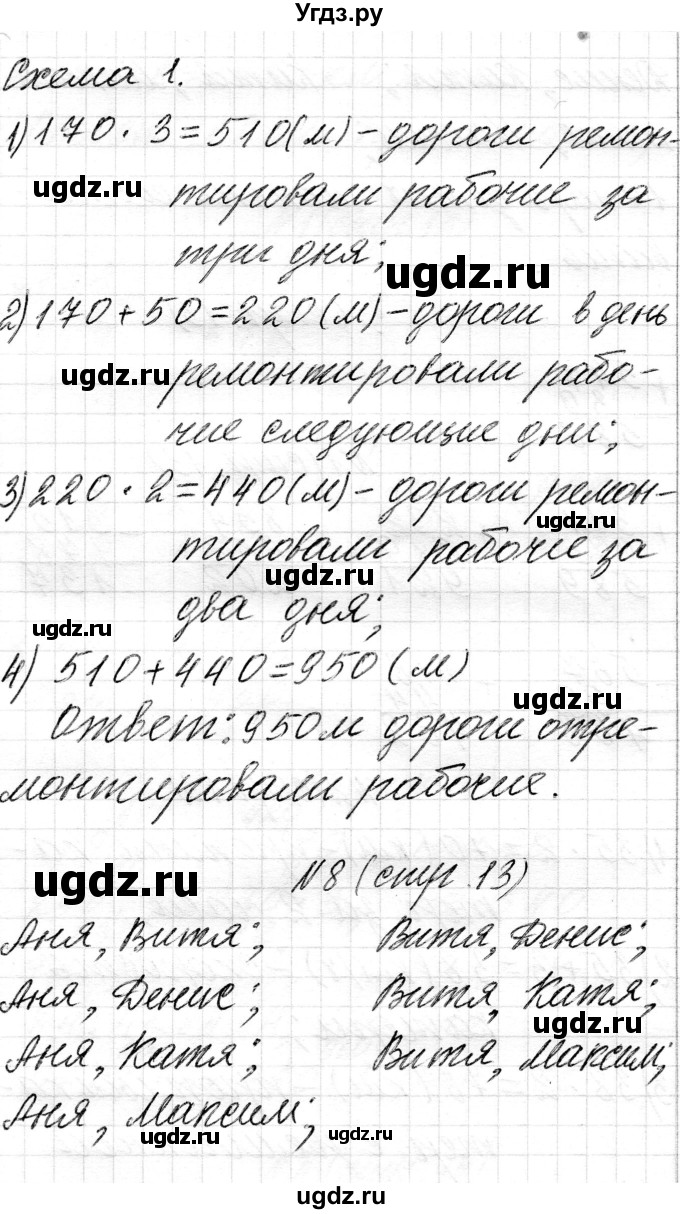 Угдз.ру
Схема 1.
1) 170 · 3 = 510 (м) - дороги ремон-
тировали рабочие за
три дня;
2) 170 + 50 = 220 (м) - дороги в день
ремонтировали рабо-
чие следующие дни;
3) 220 · 2 = 440 (м) - дороги ремон-
тировали рабочие за
два дня;
4) 510 + 440 = 950 (м)
Ответ: 950 м дороги отре-
монтировали рабочие.
№8 (стр. 13)
Аня, Витя; Витя, Денис;
Аня, Денис; Витя, Катя;
Аня, Катя; Витя, Максим;
Аня, Максим;
ugdz.ru
ugdz.ru
ugdz.ru
ugdz.ru
ugdz.ru
ugdz.ru
ugdz.ru
ugdz.ru
ugdz.ru
ugdz.ru
ugdz.ru
ugdz.ru